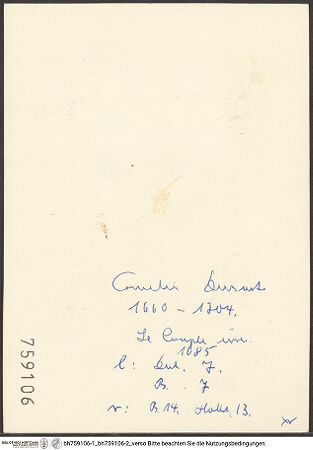 Cornelis Dusart
1660 – 1704.
Le Couple ivre.
1685
l: Dut. 7.
B. 7
r: B 14. Hollst. 13.
759106
bh759106-1_bh759106-2_verso Bitte beachten Sie die Nutzungsbedingungen.